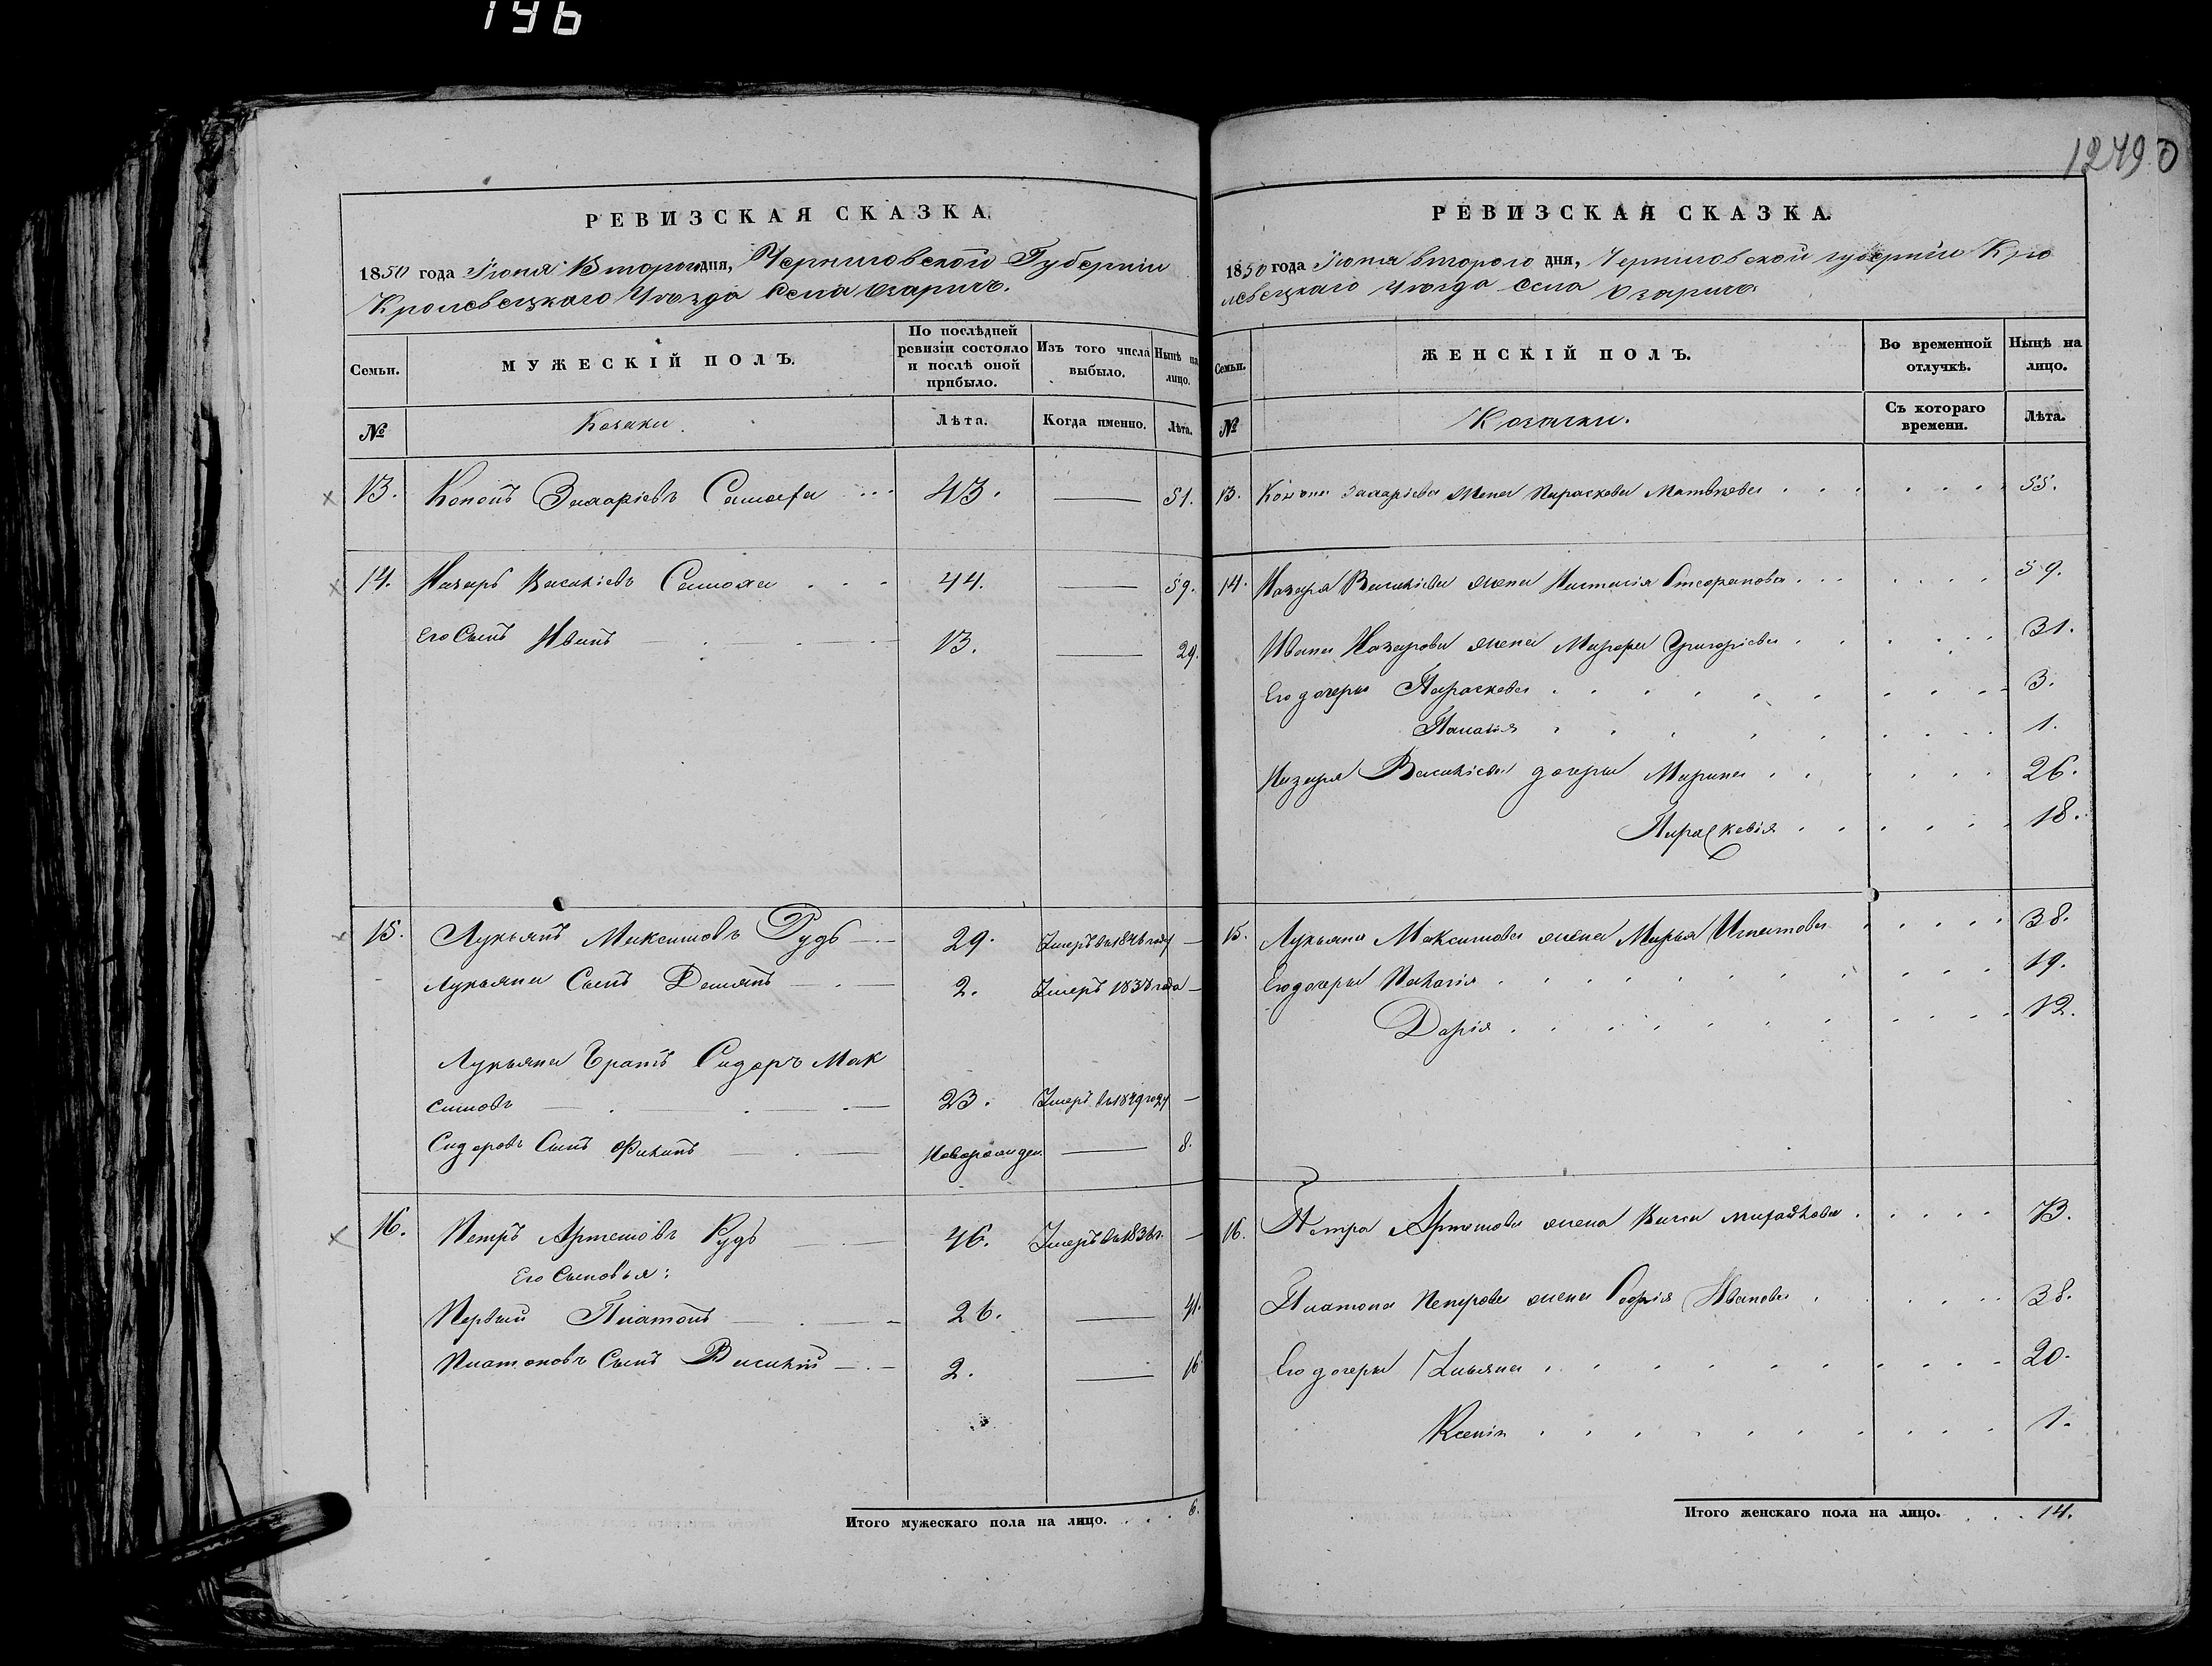 196
12490
РЕВИЗСКАЯ СКАЗКА.
1850 года Іюня Второго дня, Черниговской Губерніи
Кролевецкаго Уѣзда Села Озаричъ.
Семьи. МУЖЕСКІЙ ПОЛЪ. По послѣдней ревизіи состояло и послѣ оной прибыло. Изъ того числа выбыло. Нынѣ на лицо.
№ Козаки. Лѣта. Когда именно. Лѣта.
13. Кононъ Захаріевъ 43. 51.
14. Назаръ Василіевъ Самоха 44. 59.
Его Сынъ Иванъ 13. 29.
15. Лукьянъ Максимовъ Рудь 29. Умеръ въ 1846 году
Лукьяна Сынъ Демянъ 2. Умеръ 1837 года
Лукьяна Братъ Сидоръ Мак
симовъ 23. Умеръ въ 1849 году
Сидоровъ Сынъ Филипъ Новорожден. 8.
16. Петръ Артемовъ Рудь 46. Умеръ въ 1836 г.
Его Сыновья:
Первый Платонъ 26. 41.
Платоновъ Сынъ Василій 2. 16
Итого мужескаго пола на лицо. 6.
РЕВИЗСКАЯ СКАЗКА.
1850 года Іюня второго дня, Черниговской губерніи Кро
левецкаго уѣзда села Озаричъ
Семьи. ЖЕНСКІЙ ПОЛЪ. Во временной отлучкѣ. Нынѣ на лицо.
№ Козачки. Съ котораго времени. Лѣта.
13. Конона Захаріева Жена Параскева Матвѣева 55.
14. Назара Василіева жена Настасія Стефанова 59.
Ивана Назарова жена Марфа Григоріева 31.
Его дочери Параскева 3.
Палагія 1.
Назара Василіева дочери Марина 26.
Параскевія 18.
15. Лукьяна Максимова жена Марья Игнатова 38.
Его дочери 19.
Дарія 12.
16. Петра Артемова жена Васса 73.
Платона Петрова жена Софія Иванова 38.
Его дочери Ульяна 20.
Ксенія 1.
Итого женскаго пола на лицо. 14.